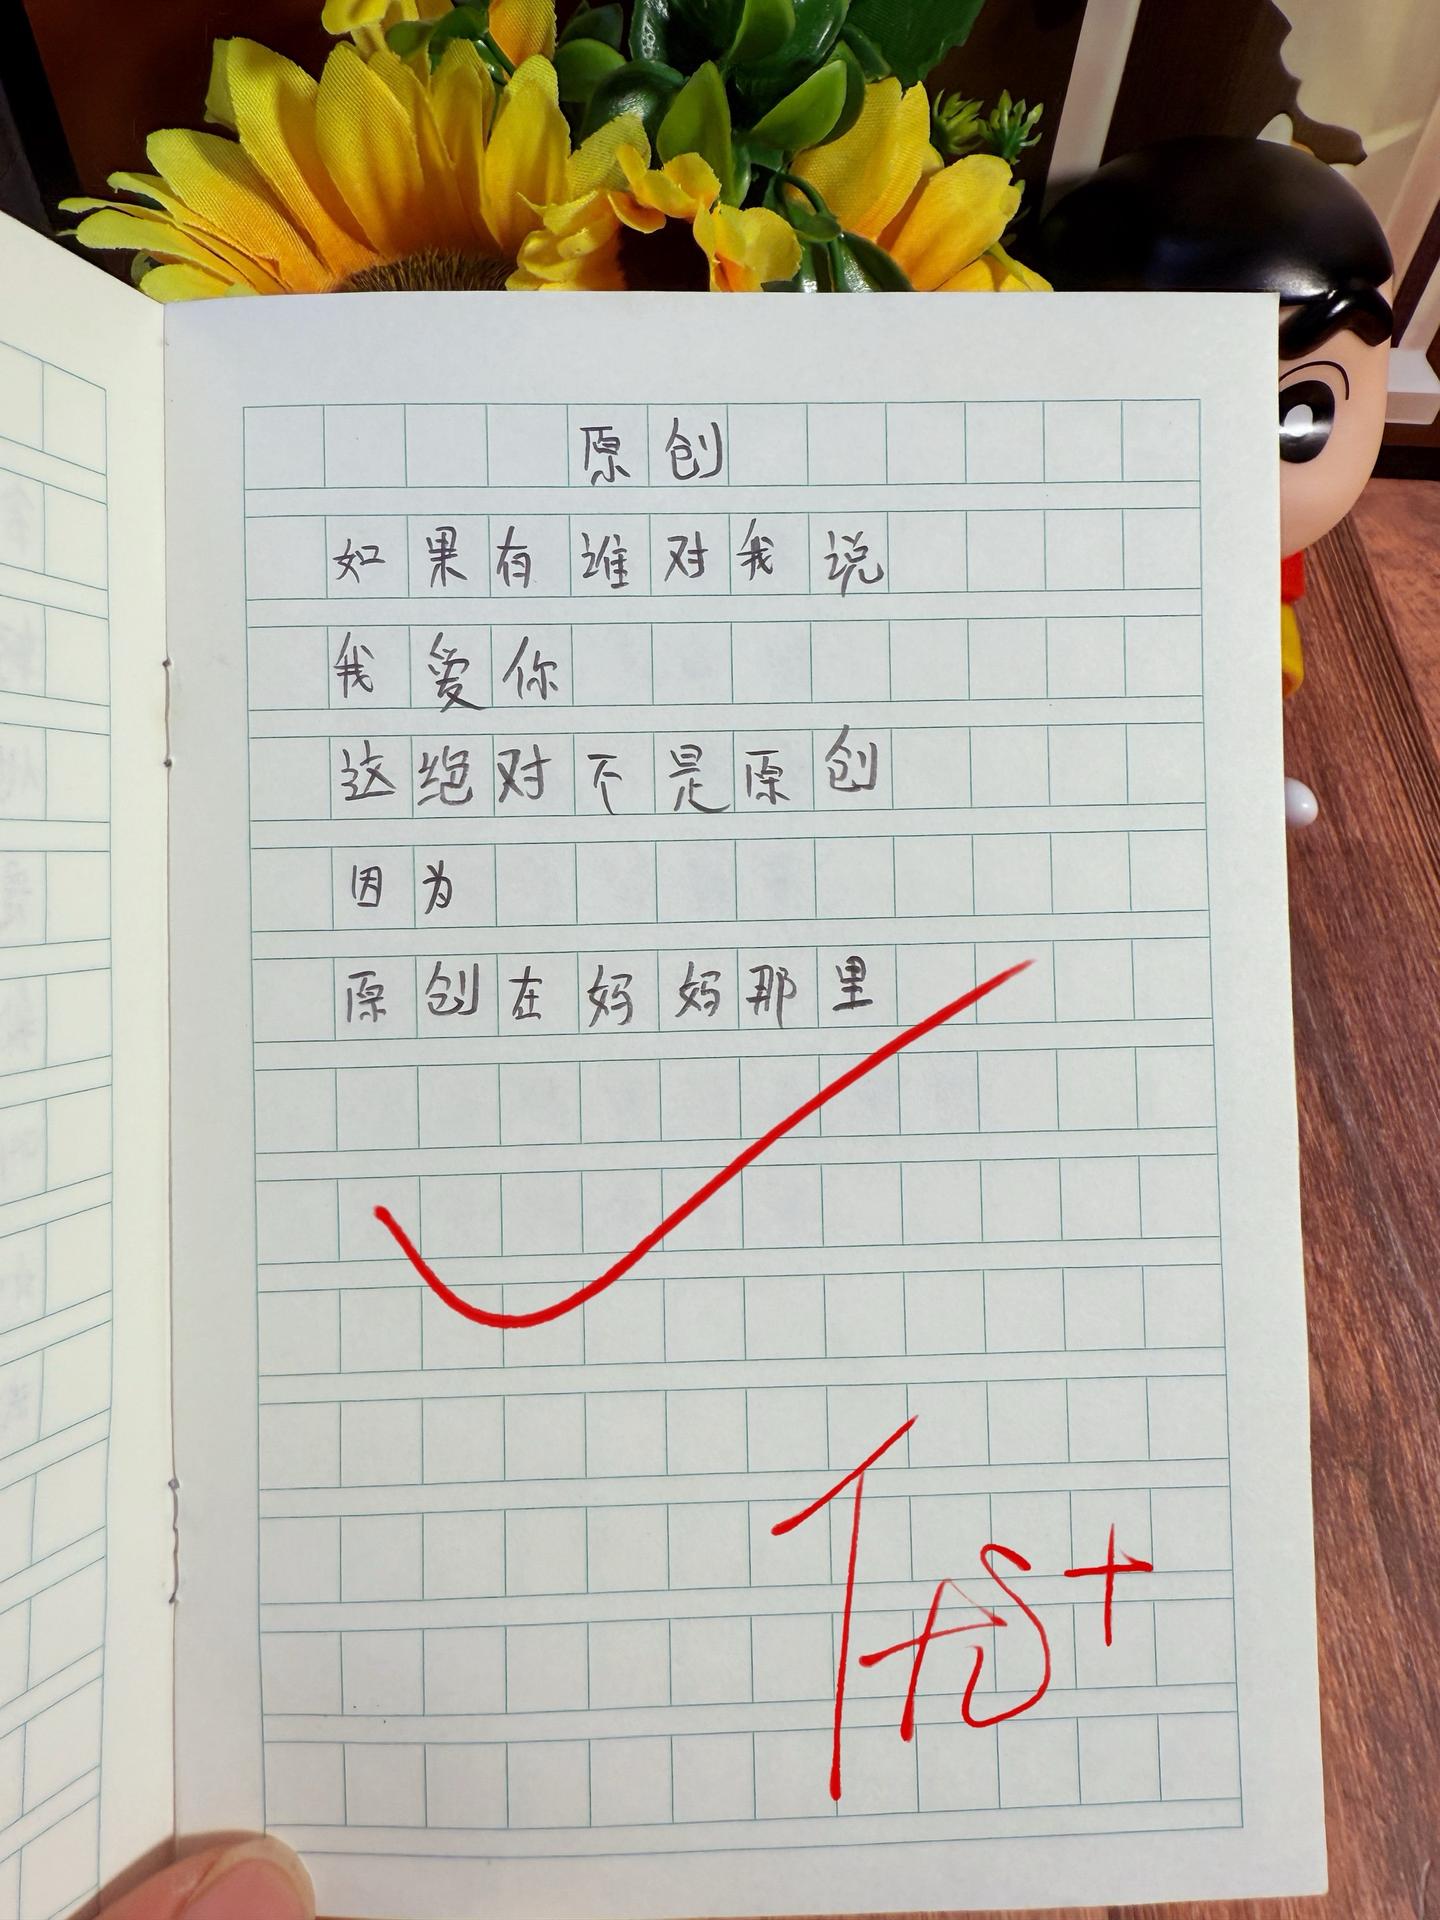 原创
如果有谁对我说
我爱你
这绝对不是原创
因为
原创在妈妈那里